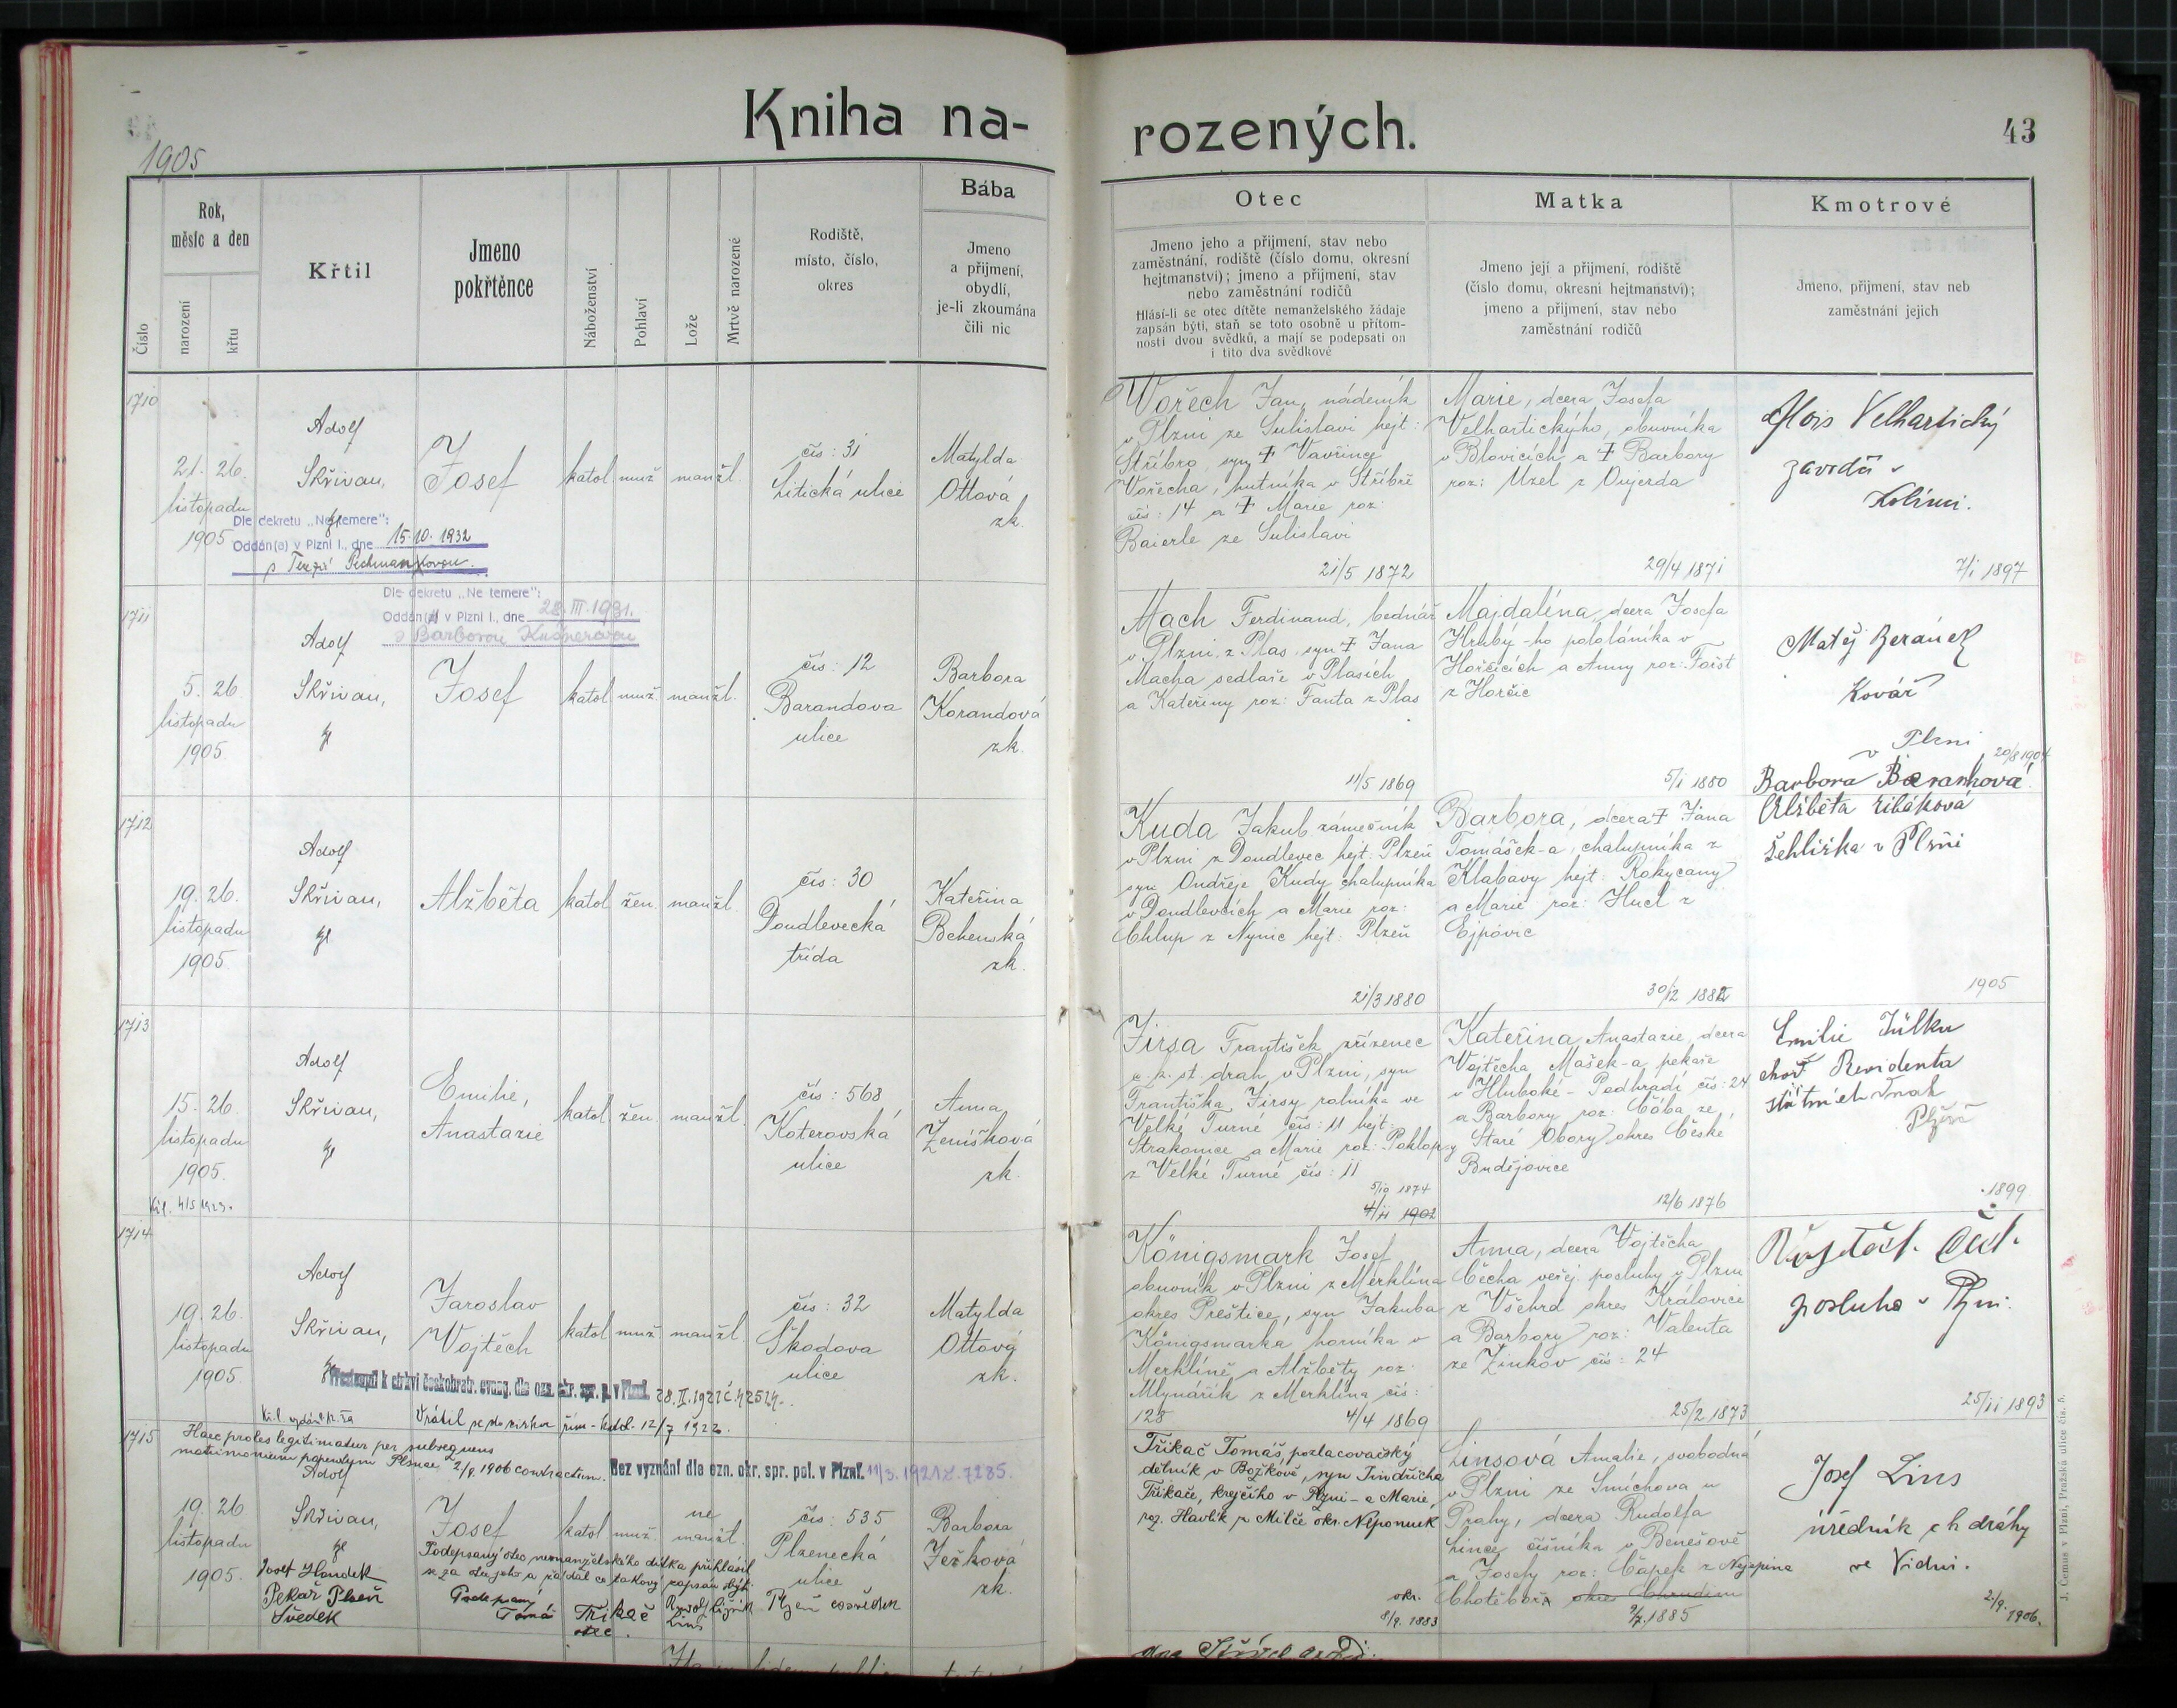 Kniha na-
rozených.
43
1905
Číslo
Rok,
měsíc a den
narození
křtu
Křtil
Jmeno
pokřtěnce
Náboženství
Pohlaví
Lože
Mrtvě narozené
Rodiště,
místo, číslo,
okres
Bába
Jmeno
a přijmení,
obydlí,
je-li zkoumána
čili nic
Otec
Jmeno jeho a přijmení, stav nebo
zaměstnání, rodiště (číslo domu, okresní
hejtmanství); jmeno a přijmení, stav
nebo zaměstnání rodičů
Hlásí-li se otec dítěte nemanželského žádaje
zapsán býti, staň se toto osobně u přítom-
nosti dvou svědků, a mají se podepsati on
i tito dva svědkové
Matka
Jmeno její a přijmení, rodiště
(číslo domu, okresní hejtmanství);
jmeno a přijmení, stav nebo
zaměstnání rodičů
Kmotrové
Jmeno, přijmení, stav neb
zaměstnání jejich
1710
21. 26.
listopadu
1905
Adolf
Skřivan,
Josef
katol
muž
manžl.
čís: 31
Litická ulice
Matylda
Ottová
zk.
Dle dekretu „Ne temere":
Oddán(a) v Plzni I., dne 15.10.1932
Vořech Jan, nádeník
v Plzni ze Sulislavi hejt:
Stříbro, syn † Vavřince
Vořecha, hutníka v Stříbře
čís: 14 a † Marie roz:
Baierle ze Sulislavi
21/5 1872
Marie, dcera Josefa
Velhartického, obuvníka
v Blovicích a † Barbory
roz: Uzel z Oujezda
29/4 1871
Alois Velhartický
Kolínni.
7/1 1897
1711
5. 26
listopadu
1905.
Dle dekretu „Ne temere":
Oddán(a) v Plzni I., dne 28.III.1931.
s Barborou Kušnerovou
Adolf
Skřivan,
Josef
katol
muž
manžl.
čís: 12
Barandova
ulice
Barbora
Korandová
zk.
Mach Ferdinand, bednář
v Plzni z Plas, syn † Jana
Macha sedláře v Plasích
a Kateřiny roz: Fanta z Plas
11/5 1869
Majdalína, dcera Josefa
Hruby-ho pololáníka v
Horčicích a Anny roz: Toist
z Horčic
5/1 1880
Matěj Beránek
Kovář
v Plzni
20/8 1904
Barbora Beránková
1712
19. 26.
listopadu
1905.
Adolf
Skřivan,
Alžběta
katol
žen.
manžl.
čís: 30
Doudlevecká
třída
Kateřina
Behenská
zk.
Kuda Jakub zámečník
v Plzni z Doudlevec hejt: Plzeň
syn Ondřeje Kudy chalupníka
v Doudlevcích a Marie roz:
Chlup z Nynic hejt: Plzeň
21/3 1880
Barbora, dcera † Jána
Tomášek-a, chalupníka z
Klabavy hejt: Rokycany
a Marie roz: Hucl z
Ejpovic
30/12 1882
Alžběta
v Plzni
1905
1713
15. 26
listopadu
1905.
Adolf
Skřivan,
Emilie,
Anastazie
katol
žen.
manžl.
čís: 568
Koterovská
ulice
Anna
Ženíšková
zk.
Jirsa František zřízenec
c. k. st. drah v Plzni, syn
Františka Jirsy rolníka ve
Velké Turné čís: 11 hejt:
Strakonice a Marie roz: Poklopsy
z Velké Turné čís: 11
5/10 1874
4/11 1902
Kateřina, Anastazie, dcera
Vojtěcha Mašek-a, pekaře
v Hluboké-Podhradí čís: 24
a Barbory roz: Čába ze
Staré Obory okres České
Budějovice
12/6 1876
Emilie Jůlku
choť Revidenta
státních drah
1899
1714
19. 26.
listopadu
1905.
Adolf
Skřivan,
Jaroslav
Vojtěch
katol
muž.
manžl.
čís: 32
Škodova
ulice
Matylda
Ottová
zk.
Přestoupil k církvi českobratr. evang. dle ozn. okr. spr. p. v Plzni. 28.II.1921 č. 42524.
Vrátil se do církve řím-katol. 12/7 1922.
Königsmark Josef
obuvník v Plzni z Merklína
okres Přeštice, syn Jakuba
Königsmarka horníka v
Merklíně a Alžběty roz:
Mlynářík z Merklína čís:
128
4/4 1869
Anna, dcera Vojtěcha
Čecha veřej. posluhy v Plzni
z Všehrd okres Kralovice
a Barbory roz: Valenta
ze Žinkov čís: 24
25/2 1873
posluha v Plzni.
25/11 1893
1715
Haec proles legitimatur per subsequens
matrimonium parentum Plsnae 2/9. 1906 contractum.
Bez vyznání dle ozn. okr. spr. pol. v Plzni. 11/3. 1921 č. 7285.
19. 26
listopadu
1905.
Adolf
Skřivan,
Josef
katol
muž
ne
manžl.
čís: 535
Plzenecká
ulice
Barbora
Ježková
zk.
Podepsaný otec nemanželského dítka přihlásil
se za otce jeho a žádal co takový zapsán býti.
Josef Houdek
Pekař Plzeň
Svědek
Podepsaný
Tomáš Trikač
otec.
Rudolf
Lins
Plzeň co svědek
Třikač Tomáš, pozlacovačský
dělník v Božkově, syn Jindřicha
Třikače, krejčího v Plzni - a Marie
roz. Havlík z Milče okr. Nepomuk
8/9. 1883
Linsová Amalie, svobodná
v Plzni ze Smíchova u
Prahy, dcera Rudolfa
Lince číšníka v Benešově
a Josefy roz: Čápek z Nejepína
okr. Chotěboř okres Chrudim
9/7. 1885
Josef Lins
úředník dráhy
ve Vidni.
2/9. 1906.
J. Černus v Plzni, Pražská ulice čís. 5.